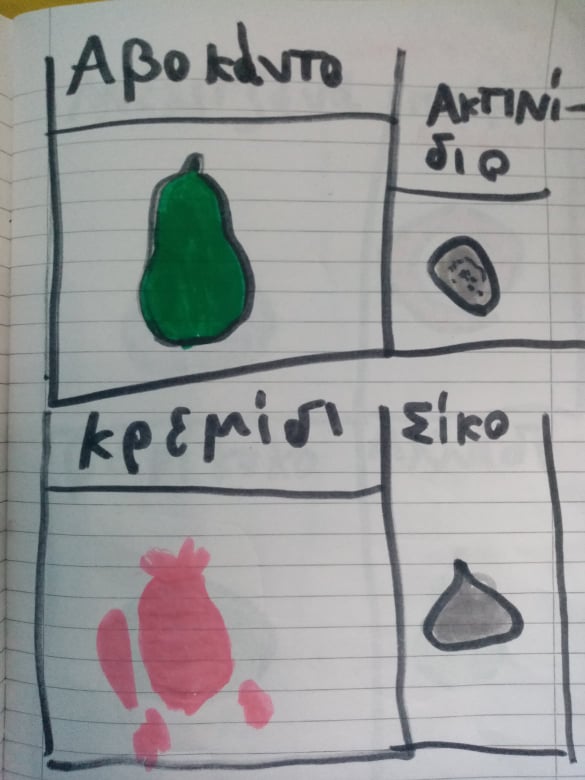 Αβοκάντο
Ακτινί-
διο
κρεμίδι
Σίκο